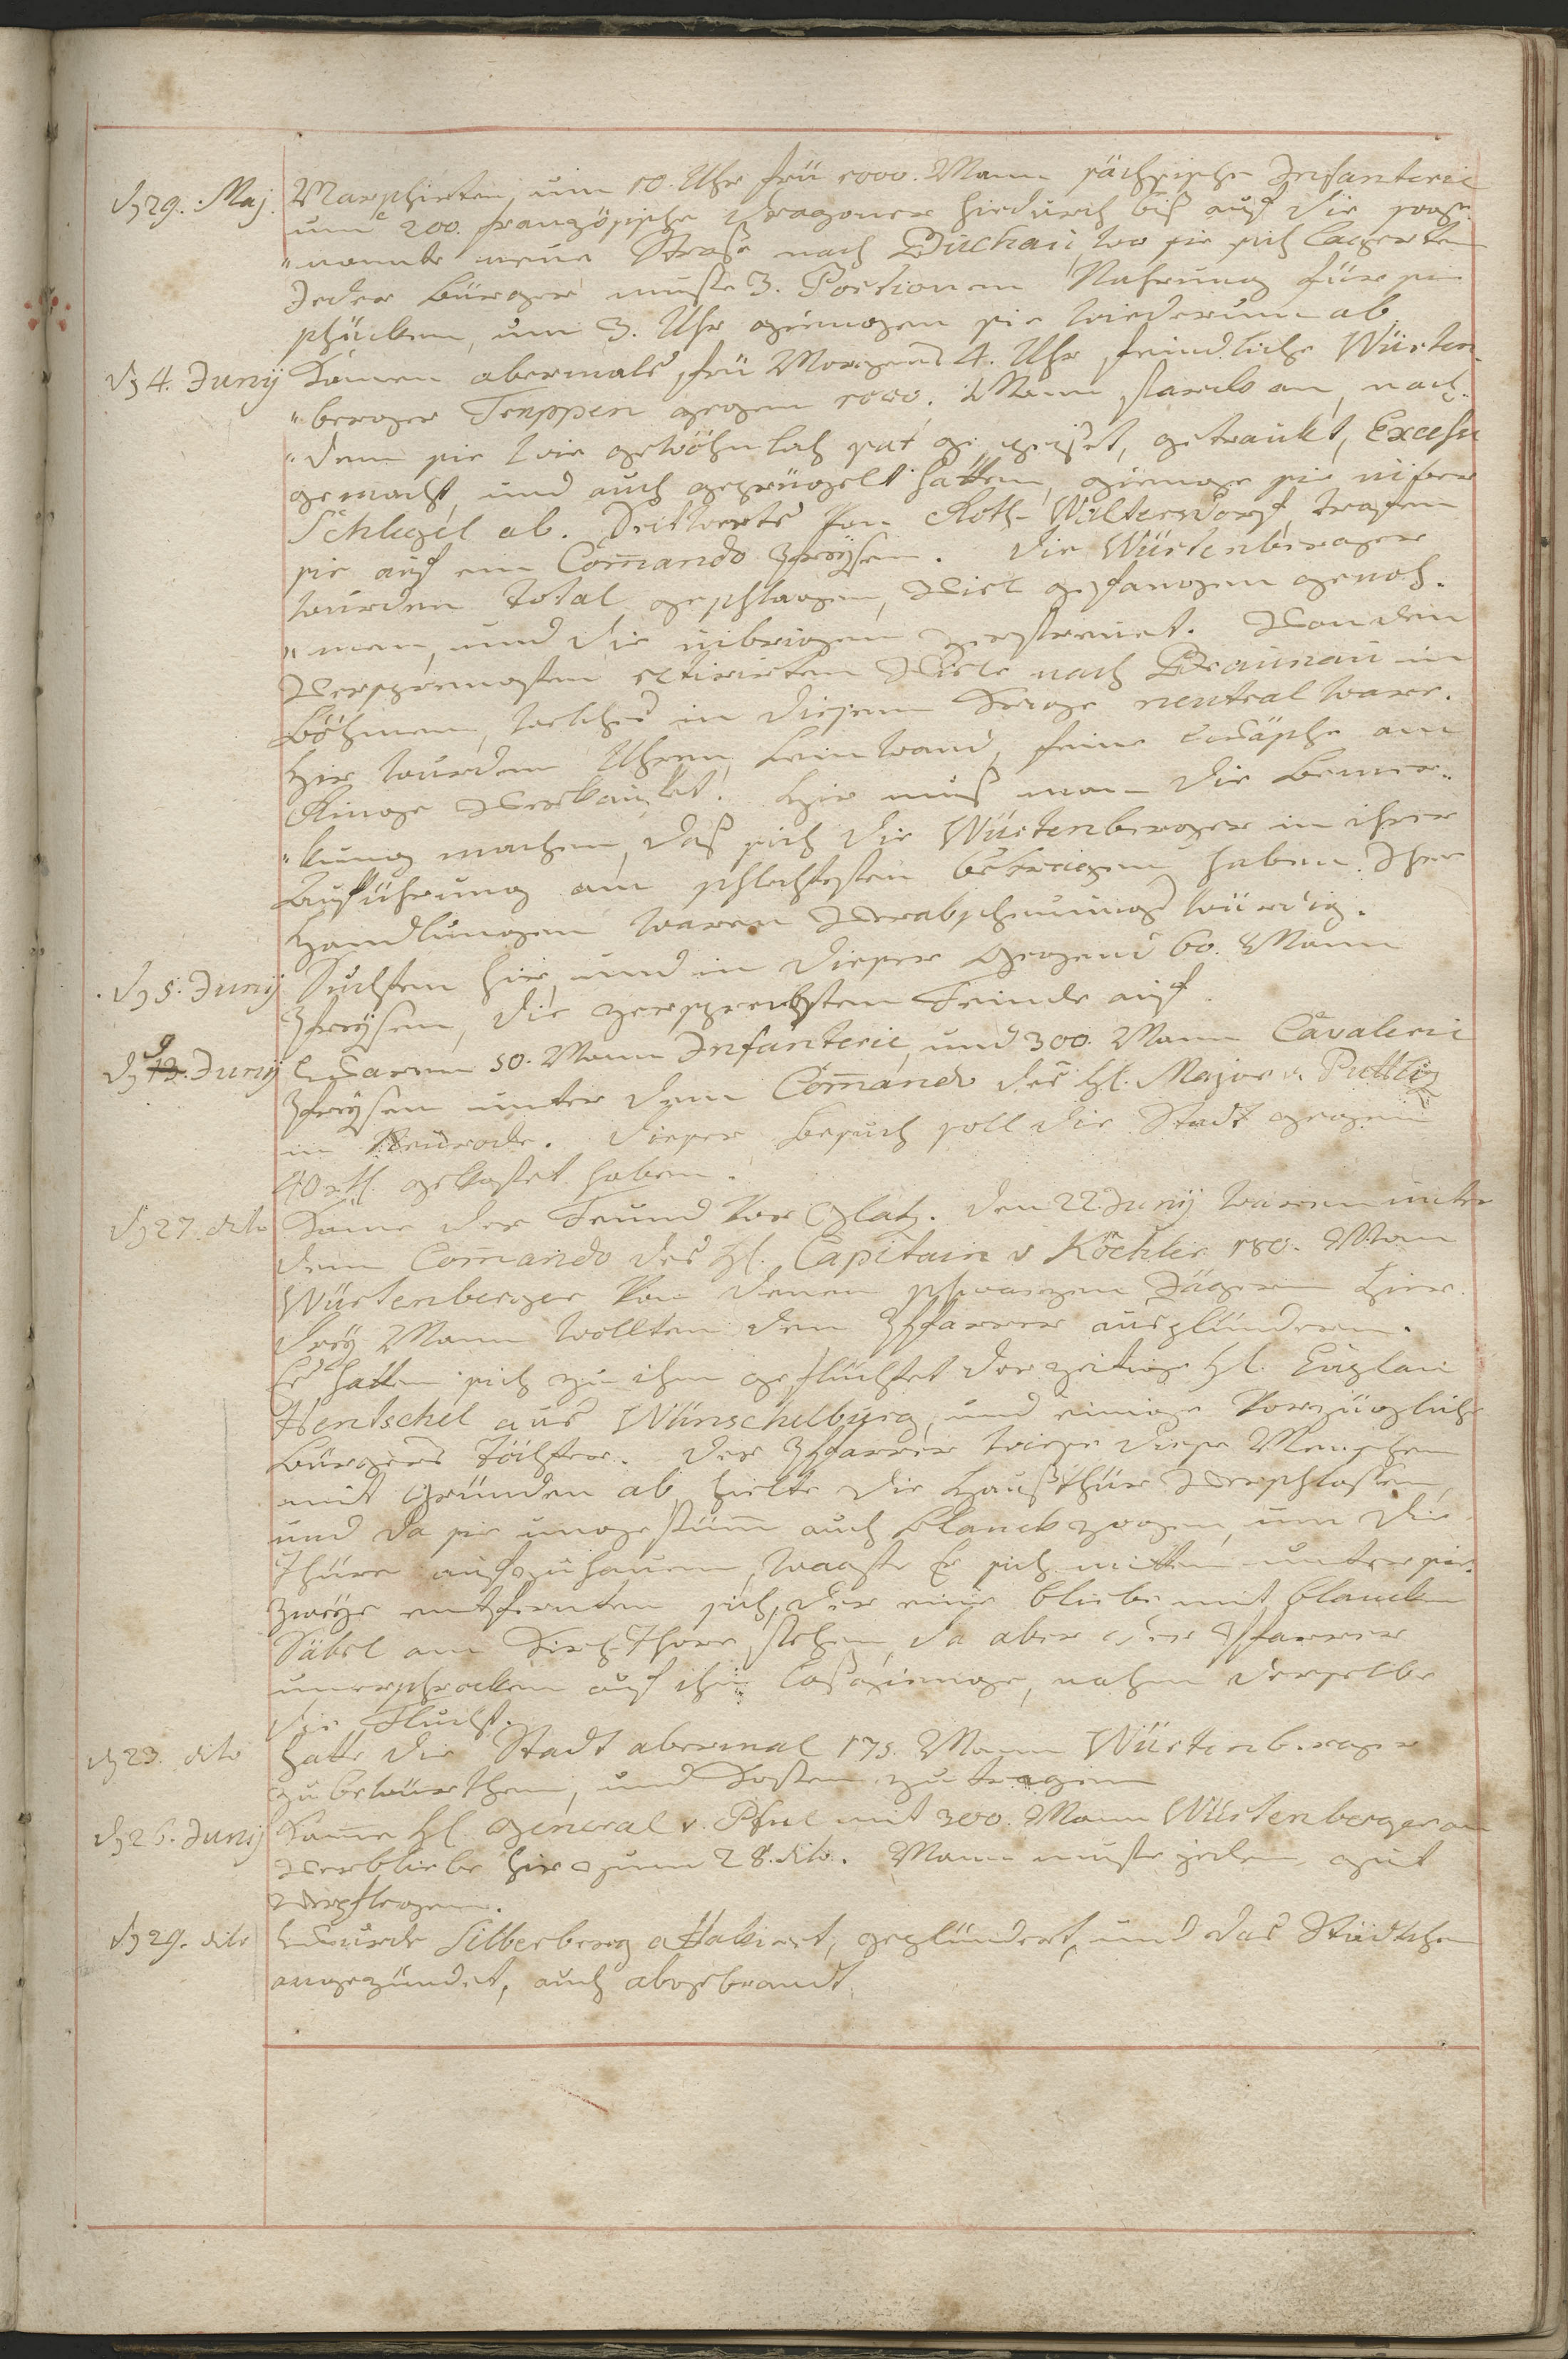 dn 29. Maj. Marschirten um 10. Uhr frü 1000. Mann sächsische Infanterie
und 200. französische Dragoner hiedurch biß auf die soge-
"nannte neue Straße nach Buchau, wo sie sich lagerten
Jeder Bürger muste 3. Portionen Nahrung für sie
schücken, um 3. Uhr giengen sie wiederum ab.
dn 4. Junÿ Kamen abermals frü Morgens 4. Uhr feindliche Würten-
"berger Truppen gegen 1000. Mann starck an, nach-
"dem sie wie gewöhnlich sat gespeiset, getrankt, Excesse
gemacht und auch geprügelt hatten, gienge sie über
Schlegel ab. Seitwerts von Roth-Waltersdorf trafen
sie auf ein Com̅ando Preÿsen. Die Würtenberger
wurden total geschlagen, Viel gefangen genoh-
"men, und die übrigen zerstreuet. Von den
Versprengten retirirten Viele nach Braunau in
Böhmen, welches in diesem Kriege neutral ware.
Hir wurden Uhren, Leinwand, feine Wäsche am
Ringe Verkaufet. Hir muß man die Bemer-
"kung machen, daß sich die Würtenberger in ihrer
Aufführung am schlechtesten betragen haben. Ihre
Handlungen waren Verabscheuungs würdig.
dn 5. Junÿ Suchten hir, und in dieser Gegend 60. Mann
Preÿsen, die zersprengten Feinde auf.
dn 9 13. Junÿ Waren 50. Mann Infanterie, und 300. Mann Cavalerie
Preÿsen unter dem Com̅ando des H. Major v. Puttlitz
in Neurode. Dieser Besuch soll die Stadt gegen
40 rth. gekostet haben.
dn 27. dito Kame der Feund vor Glatz. Den 22 Junÿ waren unter
dem Com̅ando des H. Capitain v Köchler 180. Man
Würtenberger von denen schwarzen Jägern hier.
Dreÿ Mann wollten den Pfarrer ausplündern.
Es hatten sich zu ihm geflüchtet der zeitige H. Caplan
Hentschel aus Wünschelburg, und einige vorzügliche
Bürgers Töchter. Der Pfarrer wiese diese Menschen
mit Gründen ab, hielte die Haußthür Verschlossen,
und da sie ungestüm auch blanck zogen, um die
Thüre aufzuhauen, wagte Er sich mitten unter sie.
Zweÿe entfernten sich, der eine bliebe mit blancken
Säbel am Kirch-Thore stehen, da aber der Pfarrer
unerschrocken auf ihn losgienge, nahm derselbe
die Flucht.
dn 23. dito Hatte die Stadt abermal 175. Mann Würtenberger
zu bewürthen, und Kosten zu tragen
dn 26. Junÿ Kame H. General v. Pful mit 300. Mann Würtenberger an
Verbliebe hir zum 28. dito. Mann muste jeden gut
Verpflegen.
dn 29. dito Wurde Silberberg attakirt, geplündert, und das Städtchen
angezündet, auch abgebrandt.